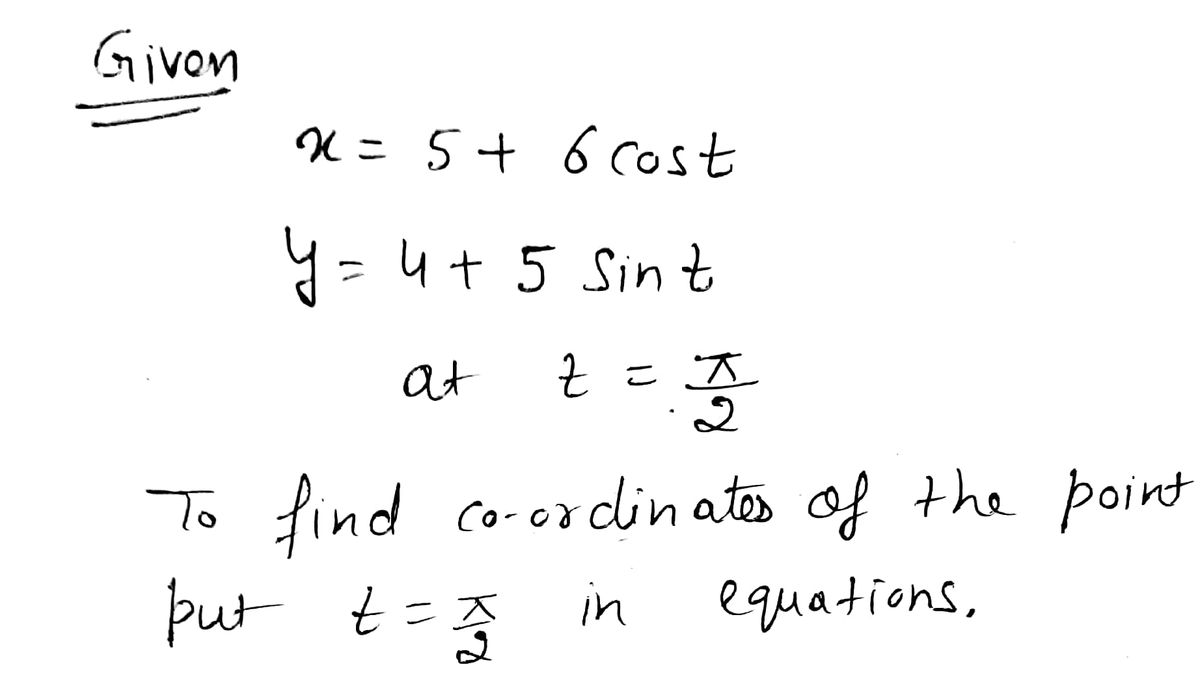 Given
x = 5 + 6 cost
y = 4 + 5 Sin t
at t = π/2
To find co-ordinates of the point
put t = π/2 in equations.